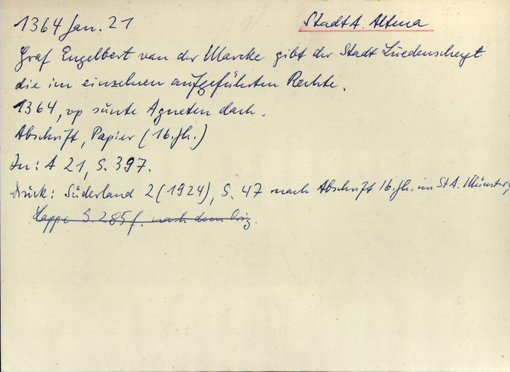 1364 Jan. 21
Stadt A. Altena
Graf Engelbert van der Marcke gibt der Stadt Luedenscheyt
die im einzelnen aufgeführten Rechte.
1364, up sunte Agneten dach.
Abschrift, Papier (16. Jh.)
In: A 21, S. 397.
Druck: Süderland 2 (1924), S. 47 nach Abschrift 16. Jh. im St A. Münster,
Hoppe S. 285 f. nach dem Orig.